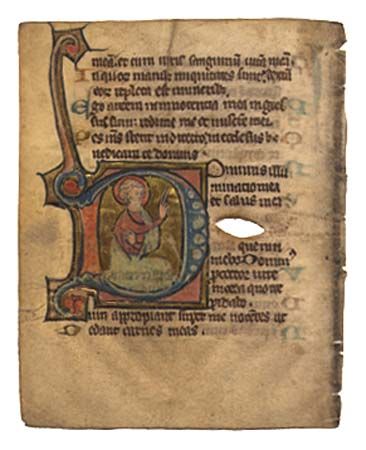 meā et cum uiris sanguinum uitā meā
In quorum manibus iniquitates sunt dextera
eorum repleta est muneribus
Ego autem in innocentia mea ingres
sus sum redime me et miserere mei
Pes meus stetit in directo in ecclesiis be
nedicam te domine
Dominus illu
minatio mea
et salus mea
quem ti
mebo Dominus
protector uite
mee a quo tre
pidabo
Dum appropiant super me nocentes ut
edant carnes meas